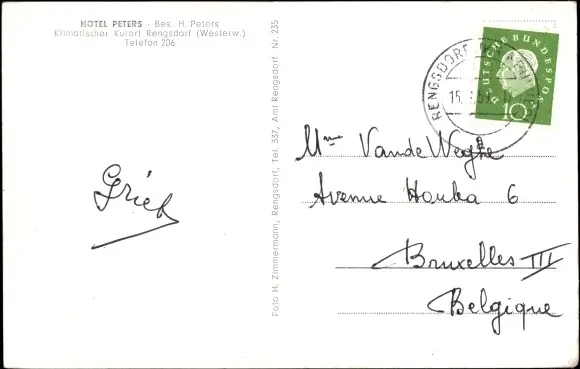 HOTEL PETERS - Bes. H. Peters
Klimatischer Kurort Rengsdorf (Westerw.)
Telefon 206
Foto H. Zimmermann, Rengsdorf, Tel. 337, Amt Rengsdorf Nr. 235
DEUTSCHE BUNDESPOST
10
RENGSDORF
15.
Mme VandeWeghe
Avenue Houba 6
Bruxelles III
Belgique